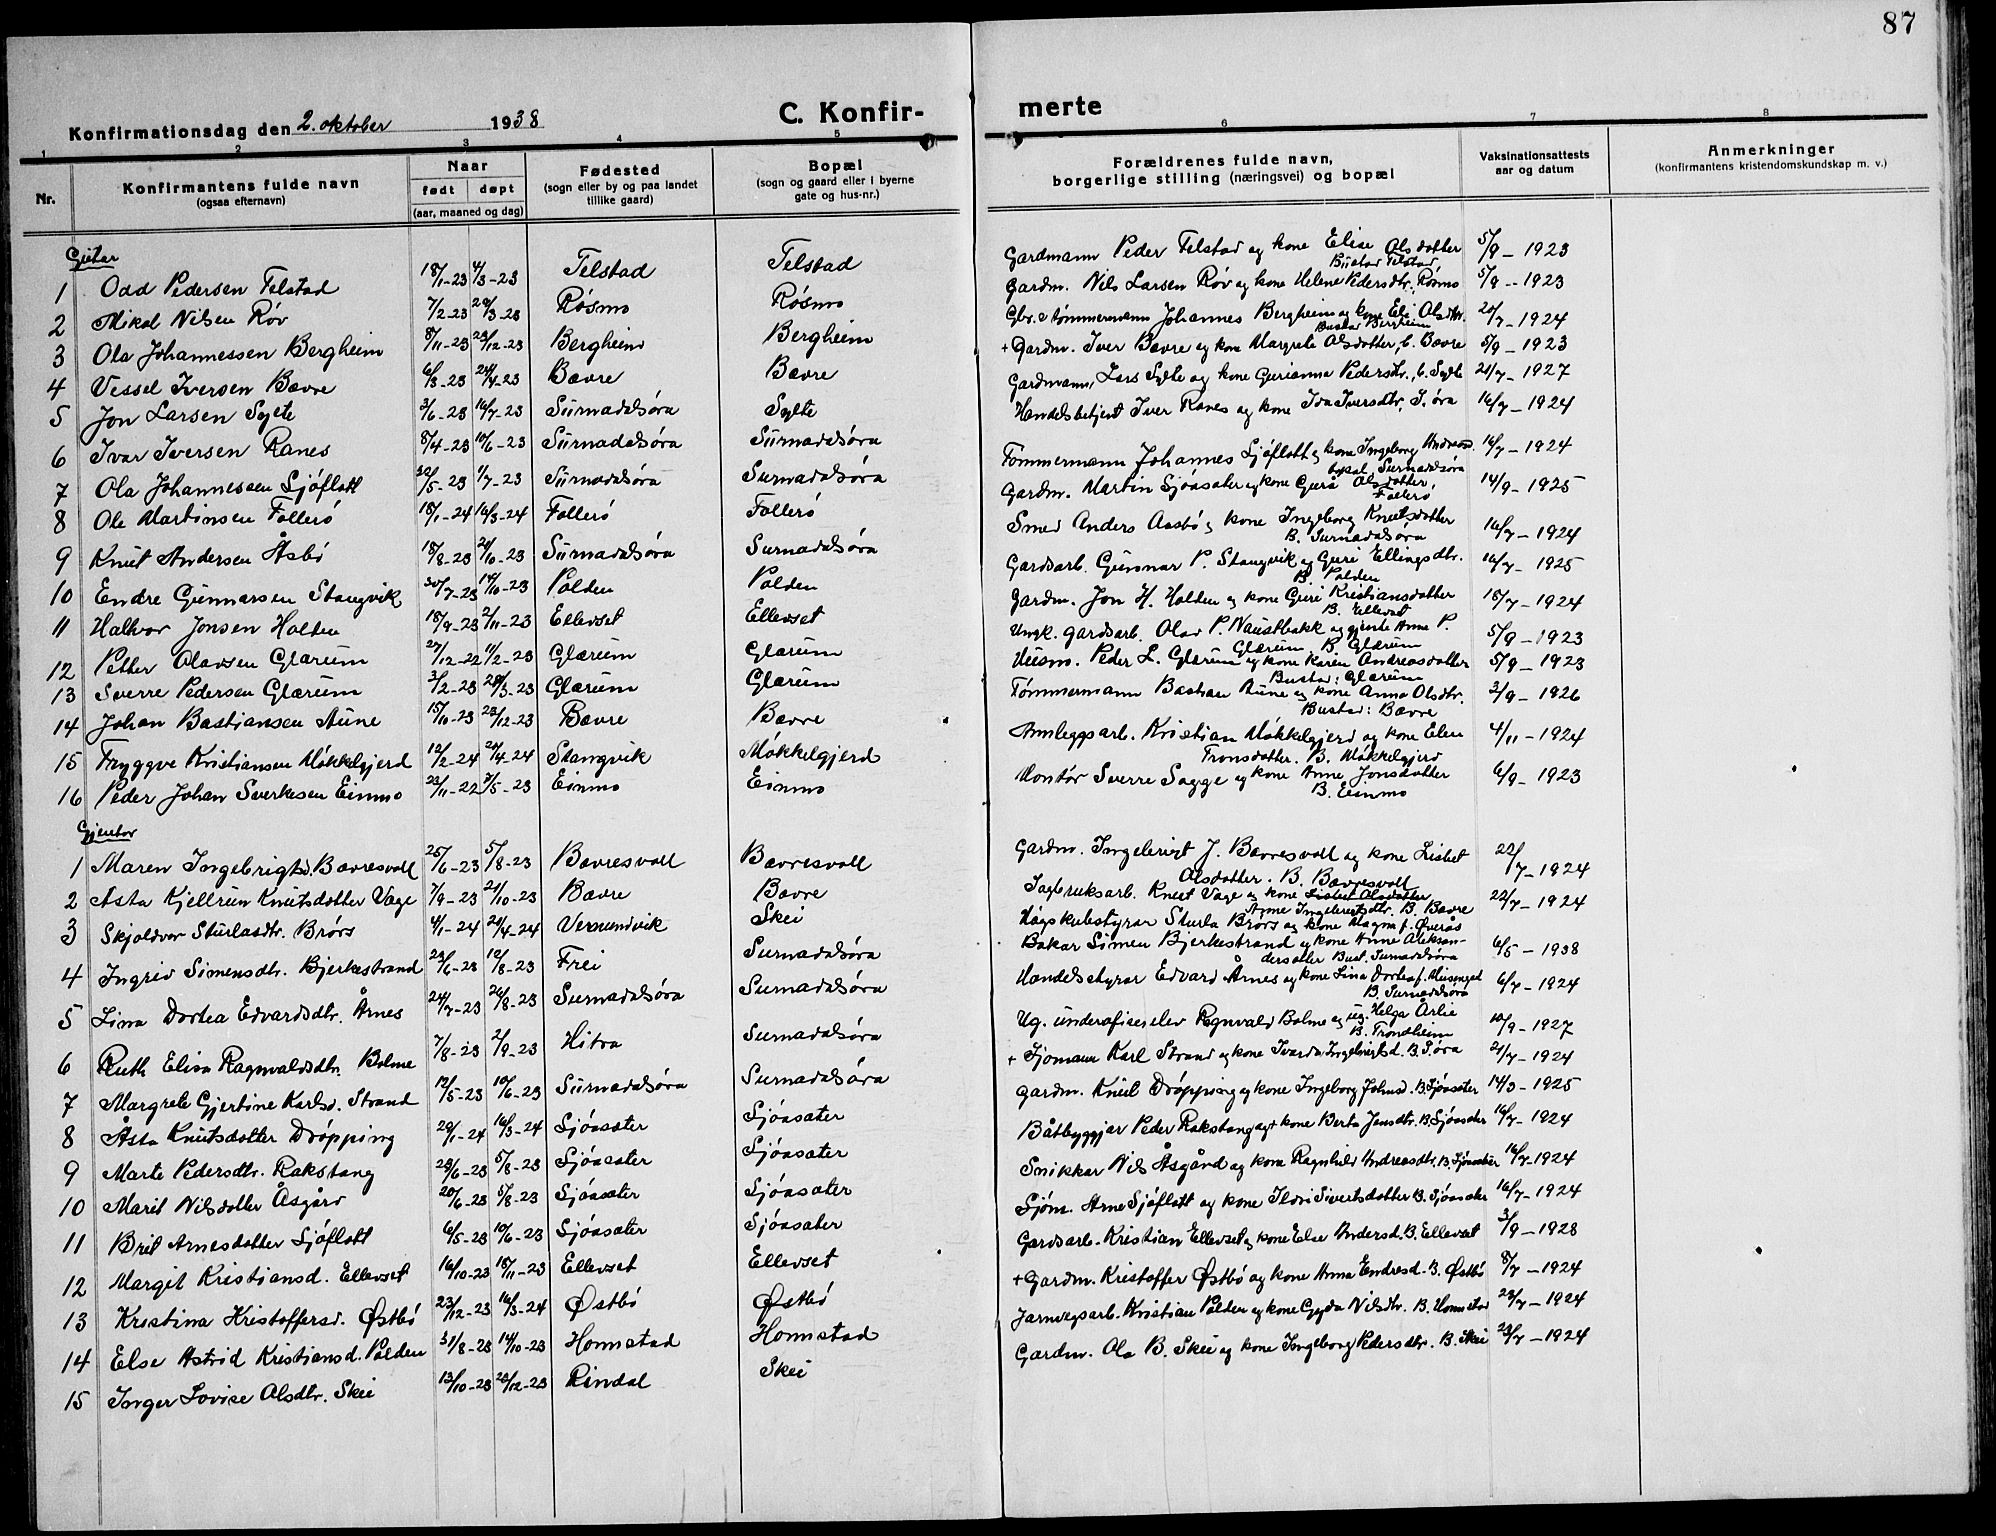 87
Konfirmationsdag den 2. oktober 1938
C. Konfir-
merte
1 2 3 4 5 6 7 8
Nr.
Konfirmantens fulde navn
(ogsaa efternavn)
Naar
født døpt
(aar, maaned og dag)
Fødested
(sogn eller by og paa landet
tillike gaard)
Bopæl
(sogn og gaard eller i byerne
gate og hus-nr.)
Forældrenes fulde navn,
borgerlige stilling (næringsvei) og bopæl
Vaksinationsattests
aar og datum
Anmerkninger
(konfirmantens kristendomskundskap m. v.)
Gutar
1 Odd Pedersen Telstad 18/1-23 4/3-23 Telstad Telstad Gardmann Peder Telstad og kone Elise Olsdotter 5/9 - 1923
Bustad Telstad
2 Mikal Nilsen Røv 7/2-23 Røsmo Røsmo Gardm. Nils Larsen Røv og kone Helene Pedersdtr. Røsmo 5/9 - 1923
3 Ola Johannessen Bergheim 8/11-23 23/12-23 Bergheim Bergheim Gbr. o tømmermann Johannes Bergheim og kone Eli Olsdtr. - 1924
Bustad Bergheim
4 Vessel Iversen Bævre 6/3-23 24/4-23 Bævre Bævre + Gardm. Iver Bævre og kone Margrete Olsdotter, b. Bævre 5/9 - 1923
5 Jon Larsen Sylte 3/6-23 16/7-23 Surnadalsøra Sylte Gardmann, Lars Sylte og kone Gurianna Pedersdtr., b. Sylte 21/7 - 1927
6 Ivar Iversen Ranes 8/4-23 10/6-23 Surnadalsøra Surnadalsøra Handelsbetjent Iver Ranes og kone Ida Iversdtr. S. øra 16/7 - 1924
7 Ola Johannessen Sjøflott 1/7-23 Surnadalsøra Surnadalsøra Tømmermann Johannes Sjøflott og kone Ingeborg Andreasd. 16/7 - 1924
bopal Surnadalsøra
8 Ole Martinsen Follerø 18/1-24 16/3-24 Follerø Follerø Gardm. Martin Sjøasæter og kone Guru Olsdotter, 14/9 - 1925
Follerø
9 Knut Andersen Åsbø 18/8-23 21/10-23 Surnadalsøra Surnadalsøra Smed Anders Aasbø og kone Ingeborg Knutsdotter 16/7 - 1924
B. Surnadalsøra
10 Endre Gunnarsen Stangvik 30/7-23 14/10-23 Polden Polden Gardsarb. Gunnar P. Stangvik og Guri Ellingsdtr. 16/7 - 1925
B. Polden
11 Halvor Jonsen Holden 18/9-23 2/11-23 Ellevset Ellevset Gardm. Jon H. Holden og kone Guri Kristiansdotter 18/7 - 1924
B. Ellevset
12 Petter Olavsen Glærum 27/12-22 11/2-23 Glærum Glærum Ungk. gardsarb. Olav P. Naustbakk og gjente Anne P. 5/9 - 1923
Glærum B. Glærum
13 Sverre Pedersen Glærum 3/2-23 Glærum Glærum Husm. Peder L. Glærum og kone Karen Andreasdotter 5/9 - 1923
Bustad: Glærum
14 Johan Bastiansen Aune 15/10-23 23/12-23 Bævre Bævre Tømmermann Bastian Aune og kone Anna Olsdtr. 2/9 - 1926
Bustad: Bævre
15 Tryggve Kristiansen Møkkelgjerd 12/2-24 21/4-24 Stangvik Møkkelgjerd Anleggsarb. Kristian Møkkelgjerd og kone Elen 4/11 - 1924
Tronsdotter. B. Møkkelgjerd
16 Peder Johan Sverkesen Einmo 22/11-22 Einmo Einmo Montør Sverre Sagge og kone Anne Jonsdotter 6/9 - 1923
B. Einmo
Gjentor
1 Maren Ingebrigtsd. Bævresvoll 25/6-23 5/8-23 Bævresvoll Bævresvoll Gardm. Ingebrigt J. Bævresvoll og kone Lisbet 22/7 - 1924
Olsdotter. B. Bævresvoll
2 Asta Kjellrun Knutsdotter Vage 7/9-23 21/10-23 Bævre Bævre Sagbruksarb. Knut Vage og kone Lisbet Olsdotter 22/7 - 1924
Anne Ingebrigtsdtr. B. Bævre
3 Skjoldvor Sturlasdtr. Brørs 4/1-24 21/4-24 Vennundvik Skei Høgskulestyrar Sturla Brørs og kone Magna f. Øverås
4 Ingrid Simensdtr. Bjerkestrand 23/6-23 12/8-23 Frei Surnadalsøra Bakar Simen Bjerkestrand og kone Anne Aleksan- 6/5 - 1938
dersdtter Bust. Surnadalsøra
5 Lina Dortea Edvardsdtr. Årnes 24/7-23 26/8-23 Surnadalsøra Surnadalsøra Handelsstyrar Edvard Årnes og kone Lina Dortea f. 6/7 - 1924
B. Surnadalsøra
6 Ruth Elisa Ragnvaldsdtr. Bolme 7/8-23 2/9-23 Hitra Surnadalsøra Ug. underofiserselev Ragnvald Bolme og ug. Helga Årlie 10/9 - 1927
B. Trondheim
7 Margrete Gjertine Karlsd. Strand 12/5-23 10/6-23 Surnadalsøra Surnadalsøra + Sjømann Karl Strand og kone Ivarda Ingebrigtsd. B. S. øra 21/7 - 1924
8 Åsta Knutsdotter Drøpping 20/1-24 16/3-24 Sjøasæter Sjøasæter Gardm. Knut Drøpping og kone Ingeborg Johnsd. B. Sjøasæter 14/3 - 1925
9 Marte Pedersdtr. Rakstang 23/6-23 5/8-23 Sjøasæter Sjøasæter Båtbyggjar Peder Rakstang og kone Berta Jonsdtr. B. Sjøasæter 16/7 - 1924
10 Marit Nilsdotter Åsgård 20/6-23 5/8-23 Sjøasæter Sjøasæter Snikkar Nils Åsgård og kone Ragnhild Andreasdtr. B. Sjøasæter 16/7 - 1924
11 Brit Arnesdotter Sjøflott 6/5-23 10/6-23 Sjøasæter Sjøasæter Sjøm. Arne Sjøflott og kone Ildri Sivertsdotter B. Sjøasæter 16/7 - 1924
12 Margit Kristiansd. Ellevset 16/10-23 18/11-23 Ellevset Ellevset Gardsarb. Kristian Ellevset og kone Else Andersd. B. Ellevset 3/9 - 1928
13 Kristina Kristoffersd. Østbø 23/12-23 16/3-24 Østbø Østbø + Gardm. Kristoffer Østbø og kone Anna Endresd. B. Østbø 8/7 - 1924
14 Else Astrid Kristiansd. Polden 31/8-23 14/10-23 Honnstad Honnstad Jarnvegsarb. Kristian Polden og kone Gyda Nilsdtr. B. Honnstad - 1924
15 Inger Lovise Olsdtr. Skei 13/10-23 23/12-23 Rindal Skei Gardm. Ola B. Skei og kone Ingeborg Pedersdtr. B. Skei 23/7 - 1924